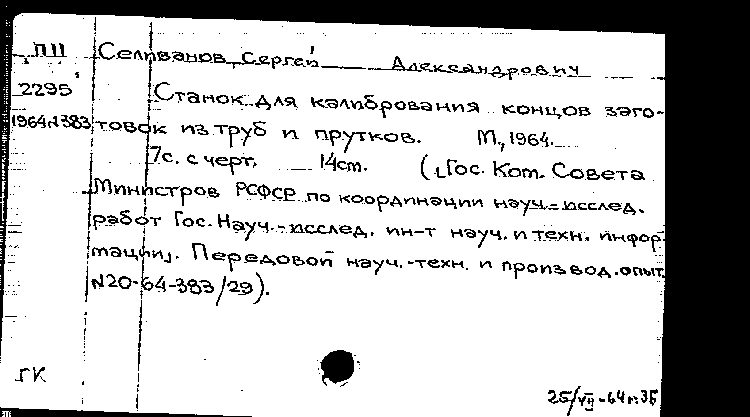 П11 Селиванов, Сергей Александрович
2295 Станок для калибрования концов заго-
1964 N383 товок из труб и прутков. М., 1964.
7с. с черт. 14cm. (Гос. Ком. Совета
Министров РСФСР по координации науч.-исслед.
работ Гос. Науч.-исслед. ин-т науч. и техн. инфор-
мации. Передовой науч.-техн. и производ. опыт.
N20-64-383/29).
ГК